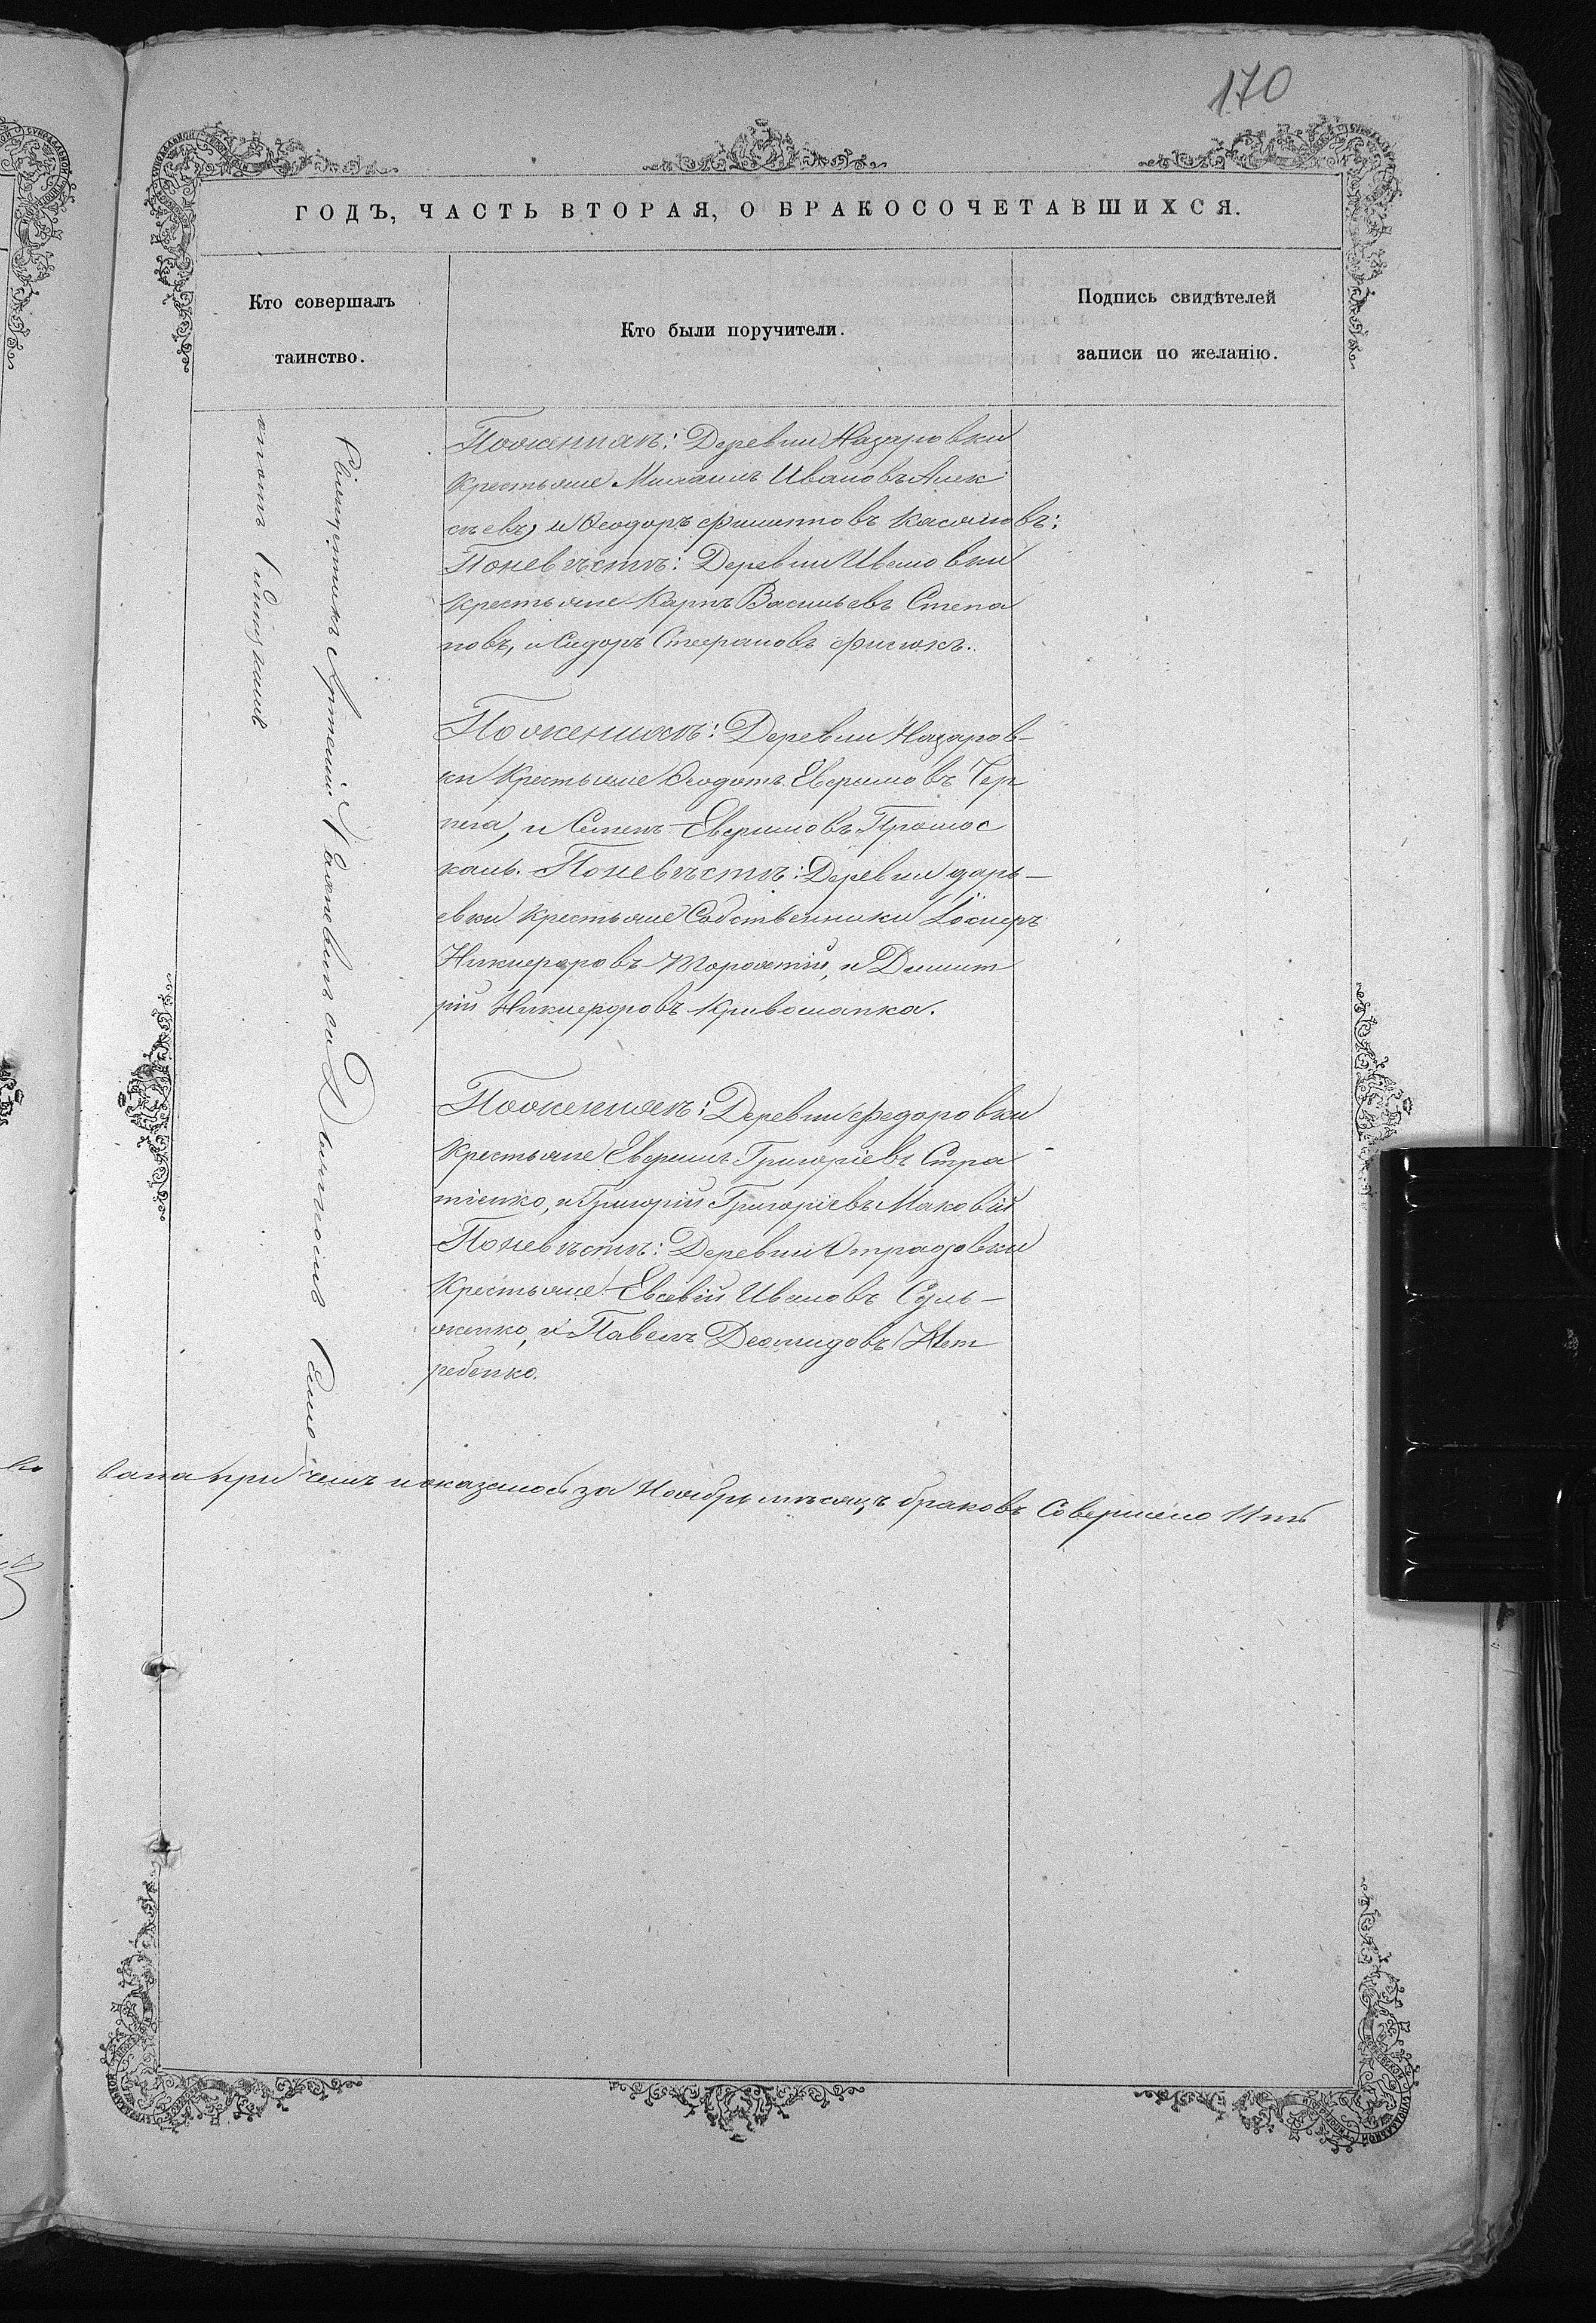 170
ГОДЪ, ЧАСТЬ ВТОРАЯ, О БРАКОСОЧЕТАВШИХСЯ.
Кто совершалъ
таинство.
Кто были поручители.
Подпись свидѣтелей
записи по желанію.
Священникъ Артемій съ Діакономъ Симе-
ономъ
По женихѣ: Деревни Назаровки
Крестьяне Михаилъ Ивановъ Алек
сѣевъ, и Ѳеодоръ Филипповъ Касяновъ:
По невѣстѣ: Деревни Ивановки
Крестьяне Карпъ Васильевъ Степа
новъ, и Сидоръ Стефановъ
По женихѣ: Деревни Назаров-
ки Крестьяне Ѳеодотъ Евфимовъ Чер
нега, и Семенъ Евфимовъ Промос
каль. По невѣстѣ: Деревни Дарь-
евки Крестьяне Собственники
Никифоровъ и Димит
рій Никифоровъ Кривошапка.
По женихѣ: Деревни Федоровки
Крестьяне Евфимъ Григоріевъ Стра
тіенко, и Григорій Григоріевъ Маковій
По невѣстѣ: Деревни Отрадовки
Крестьяне Евсевій Ивановъ Суль-
женко, и Павелъ Деомидовъ Нет
ребенко.
вана при чемъ показалось за Ноябрь мѣсяцъ браковъ Совершено 11ть